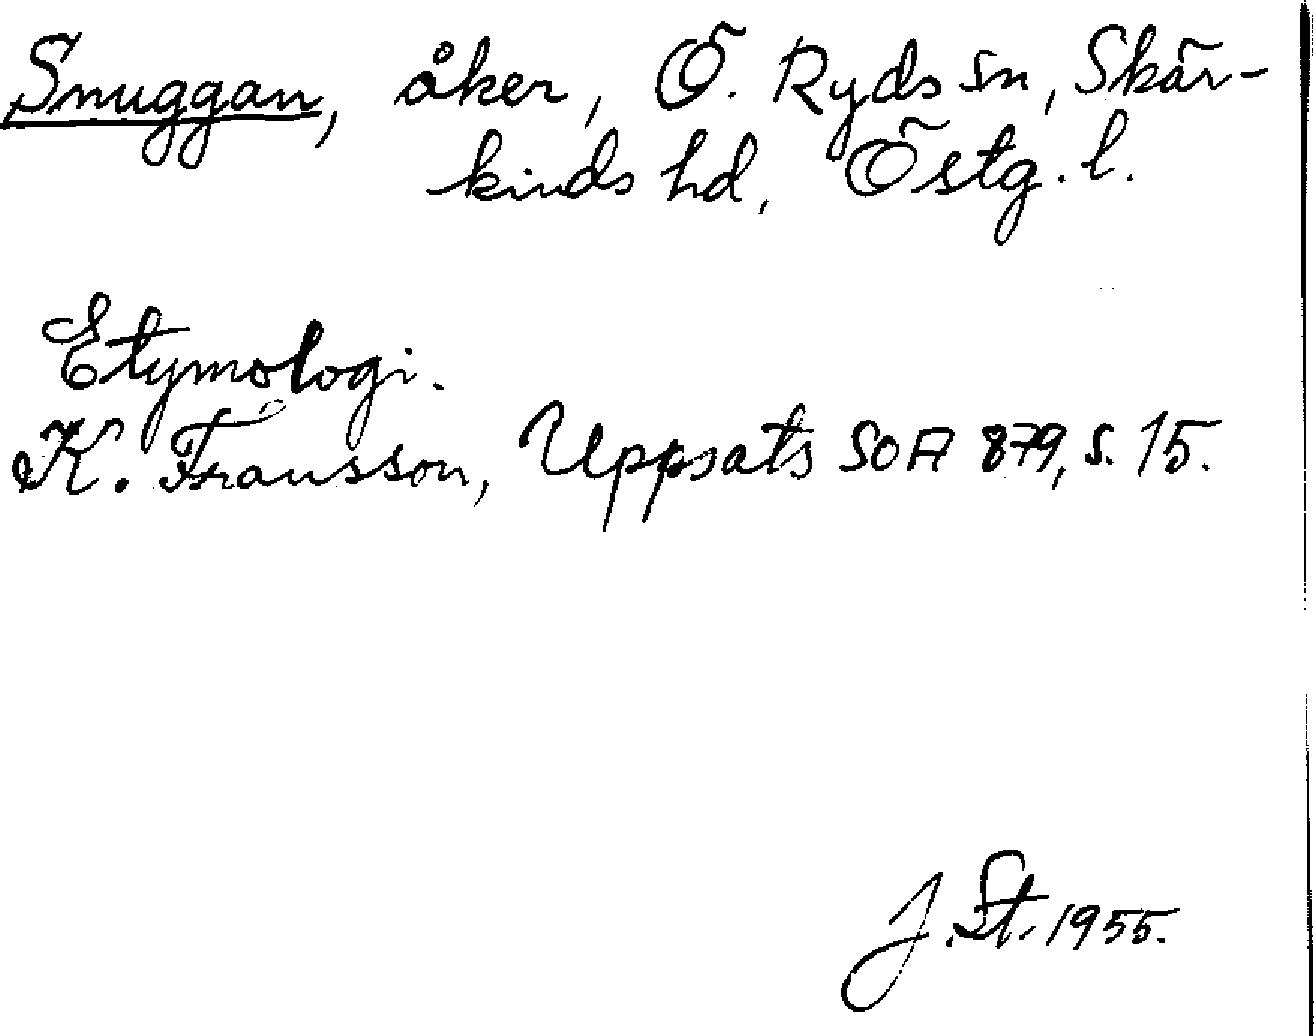 Snuggan, åker, Ö. Ryds sn, Skär-
kinds hd, Östg. l.
Etymologi.
K. Fransson, Uppsats SOA 879, s. 15.
J. St. 1955.